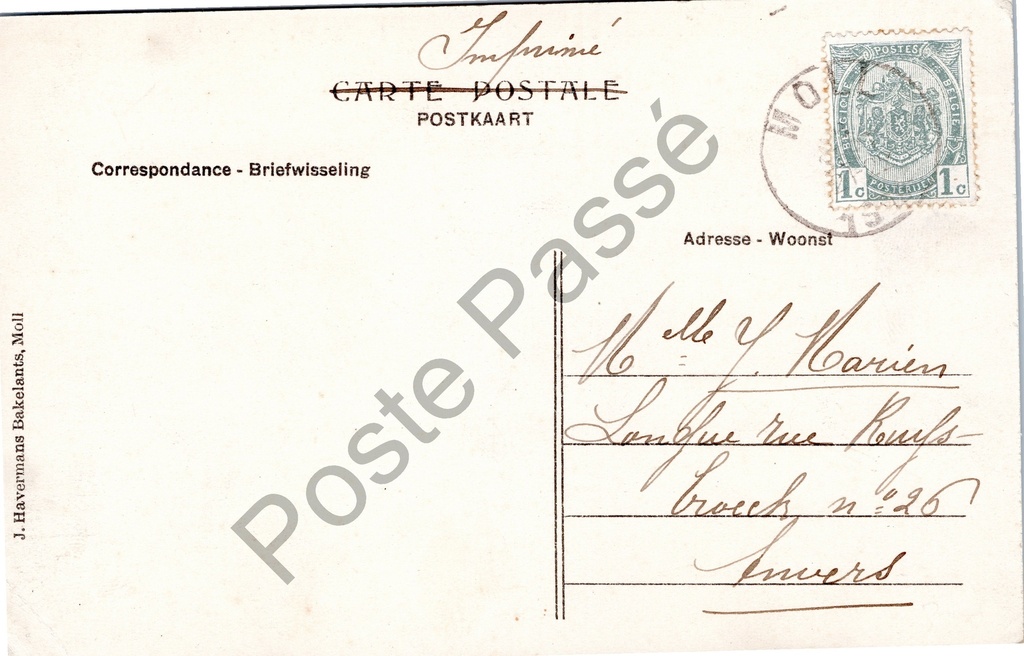 Imprimé
CARTE POSTALE
POSTKAART
Correspondance - Briefwisseling
Adresse - Woonst
POSTES
BELGIQUE
BELGIË
1c POSTERIJEN 1c
MOLL
Melle J. Mariën
Longue rue Ruys-
broeck nº 26
Anvers
J. Havermans Bakelants, Moll
Poste Passé